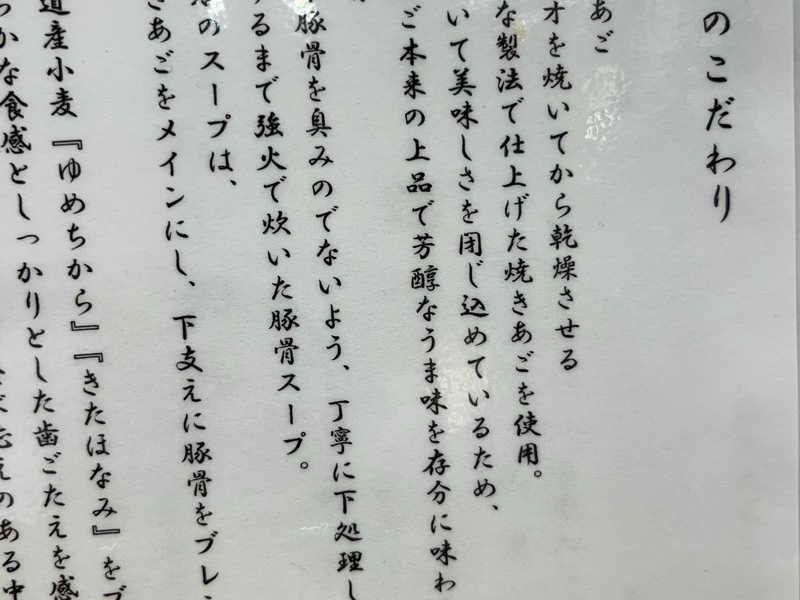 のこだわり
あご
オを焼いてから乾燥させる
な製法で仕上げた焼きあごを使用。
いて美味しさを閉じ込めているため、
ご本来の上品で芳醇なうま味を存分に味わ
豚骨を臭みのでないよう、丁寧に下処理し
するまで強火で炊いた豚骨スープ。
のスープは、
きあごをメインにし、下支えに豚骨をブレン
道産小麦『ゆめちから』『きたほなみ』をブ
っかな食感としっかりとした歯ごたえを感
応えのある中